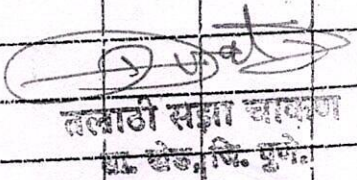 तलाठी सझा चाकण
ता. खेड, जि. पुणे.